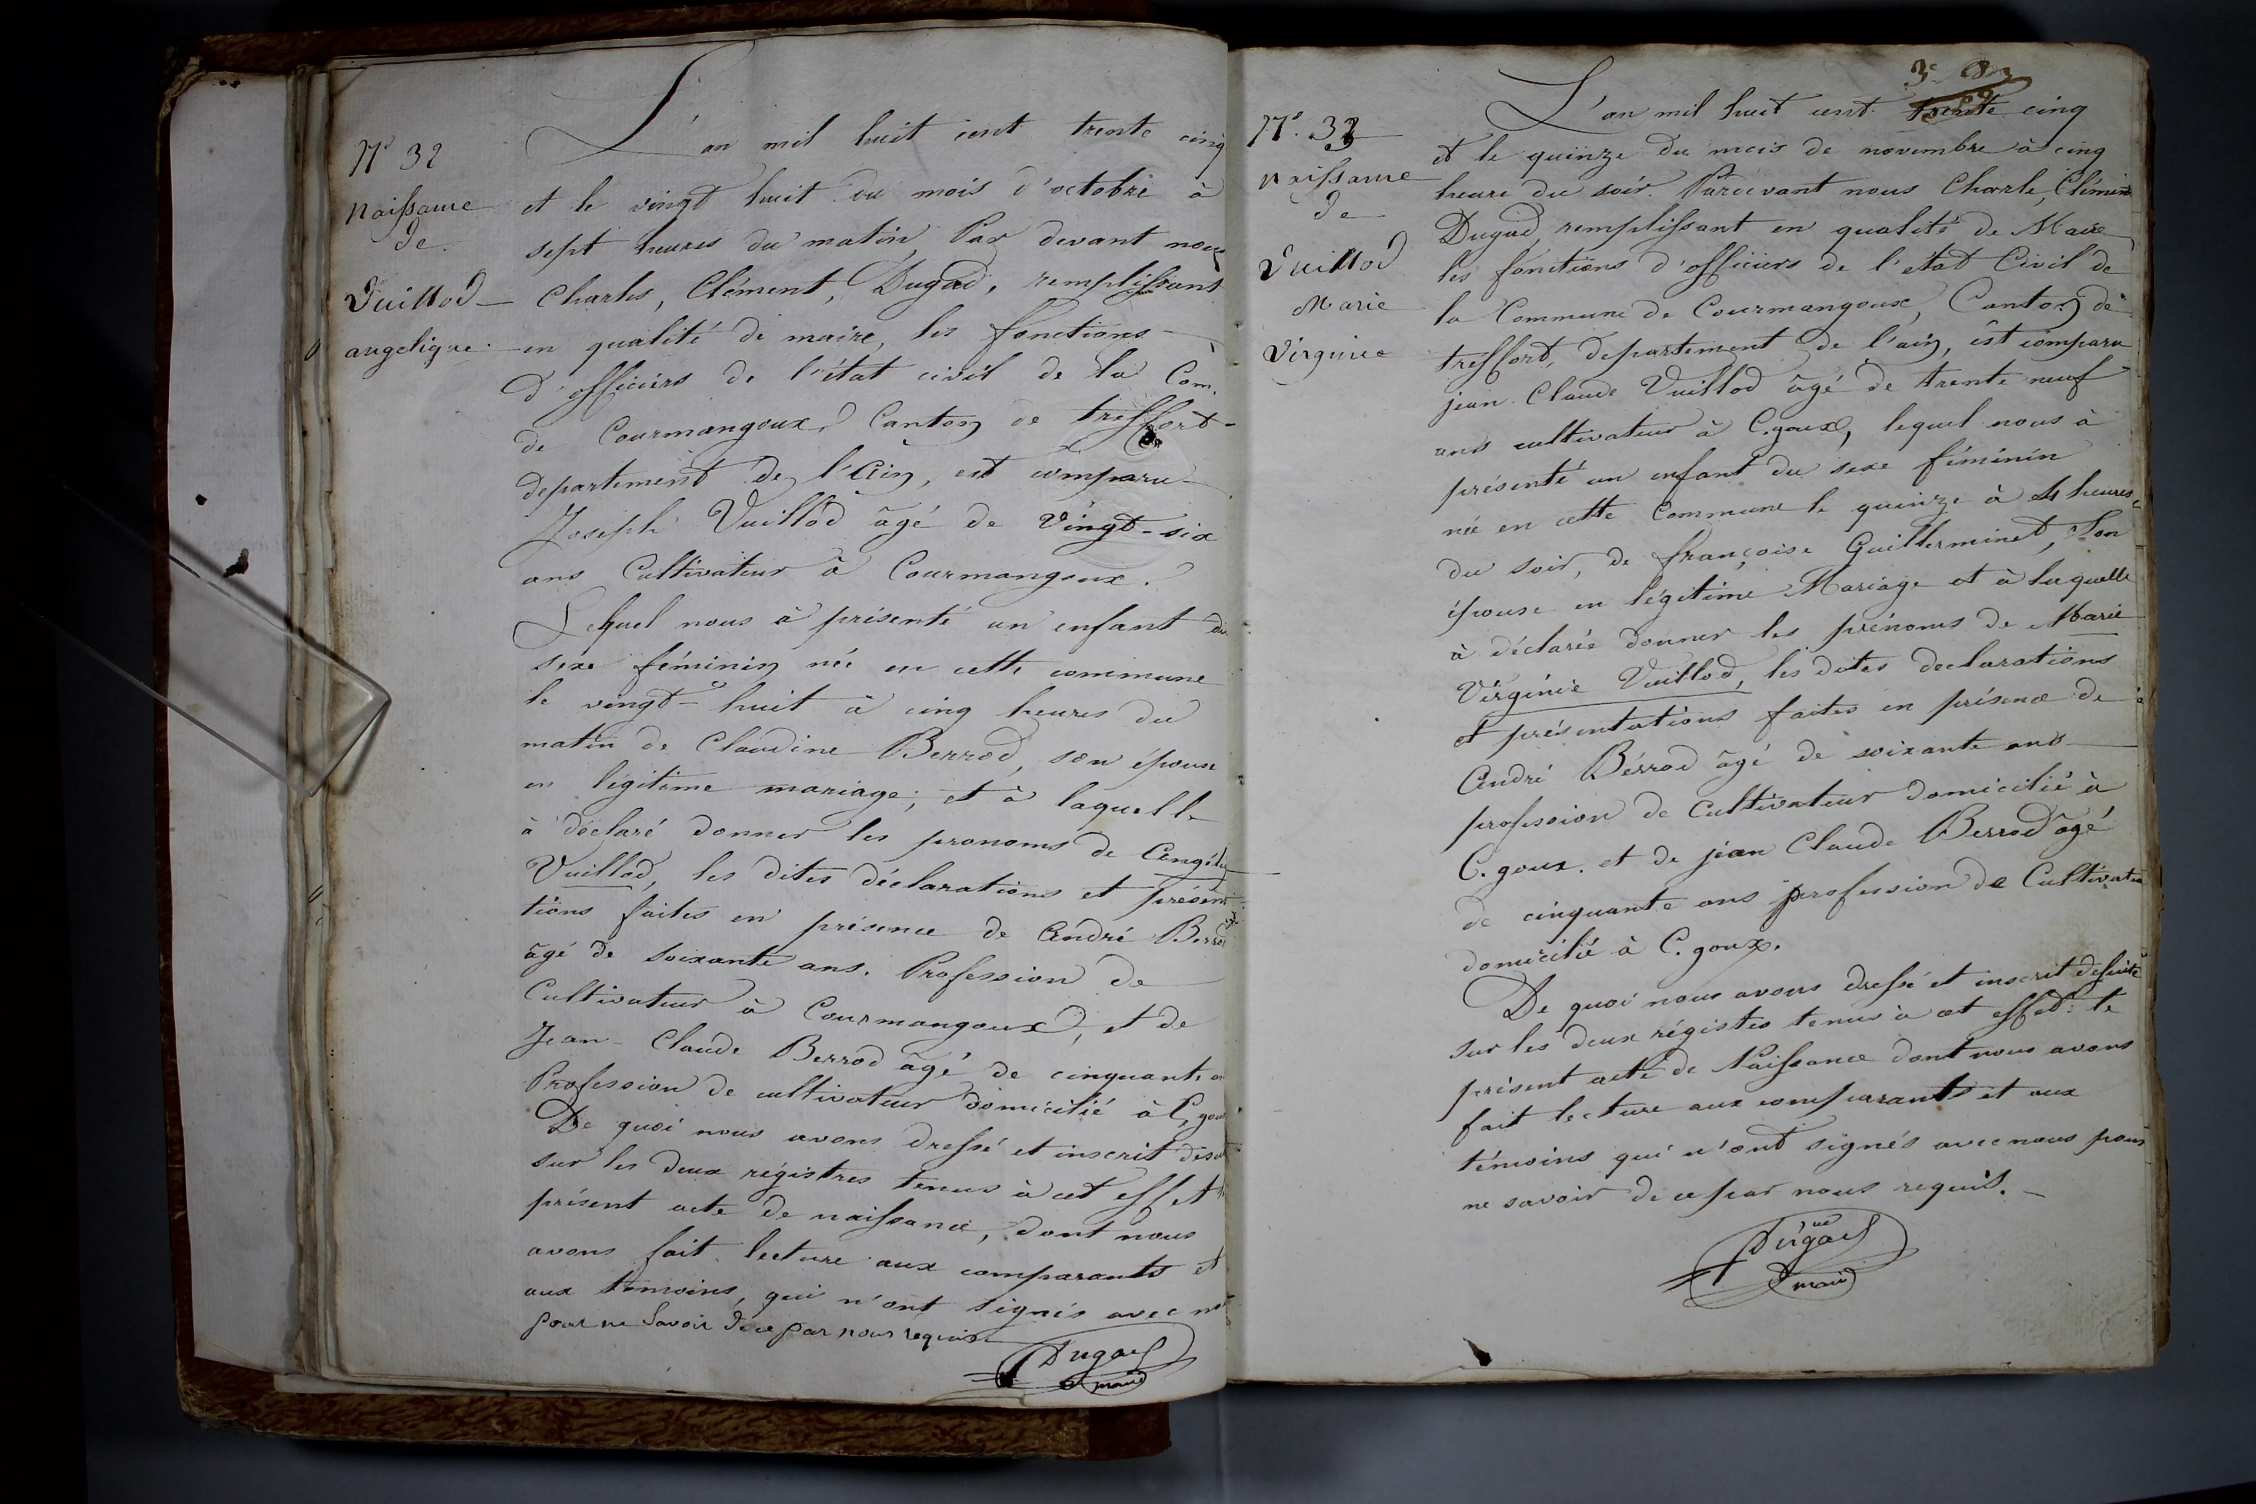 N° 32
Naissance
de
Vuillod
angelique
L'an mil huit cent trente cinq
et le vingt huit du mois d'octobre à
sept heures du matin, Par devant nous
Charles, Clément, Dugad, remplissant
en qualité de maire, les fonctions
d'officiers de l'état civil de la Com.
de Courmangoux, Canton de treffort
departement de l'Ain, est comparu
Joseph Vuillod âgé de Vingt-six
ans Cultivateur à Courmangoux.
Lequel nous à présenté un enfant du
sexe féminin née en cette commune
le vingt-huit à cinq heures du
matin de Claudine Berrod, son épouse
en légitime mariage; et à laquelle
à déclaré donner les pronoms de
Vuillod, les dites déclarations et présent
tions faites en présence de André Berrod
âgé de soixante ans. Profession de
Cultivateur à Courmangoux, et de
Jean-Claude Berrod âgé de cinquante
Profession de cultivateur domicilié à C, goux
De quoi nous avons dressé et inscrit
sur les deux régistres tenus à cet effet
présent acte de naissance, dont nous
avons fait lecture aux comparants et
aux témoins, qui n'ont signés avec
pour ne Savoir de ce par nous requis
Dugad
maire
N°. 33
Naissance
de
Vuillod
Marie
Virginie
L'an mil huit cent trente cinq
et le quinze du mois de novembre à cinq
heure du soir. Pardevant nous Charle, Clément
Dugad, remplissant en qualité de Maire
les fonctions d'officiers de l'état Civil de
la Commune de Courmangoux, Canton de
treffort, departement de l'ain, est comparu
jean Claude Vuillod âgé de trente neuf
ans cultivateur à C.goux, lequel nous à
présenté un enfant du sexe féminin
née en cette Commune le quinze à 4 heures
du soir, de françoise Guillerminet, Son
épouse en légitime Mariage et à laquelle
à déclarée donner les prénoms de Marie
Virginie Vuillod, les dites declarations
et présentations faites en présence de
André Bérrod âgé de soixante ans
profession de Cultivateur domicilié à
C. goux. et de jean Claude Berrod âgé
de cinquante ans profession de Cultivateur
domicilié à C. goux.
De quoi nous avons dressé et inscrit desuite
sur les deux régistes tenus à cet effet: le
présent acte de Naissance dont nous avons
fait lecture aux comparants et aux
témoins qui n'ont signés avec nous pour
ne savoir de ce par nous requis.
Dugad
maire